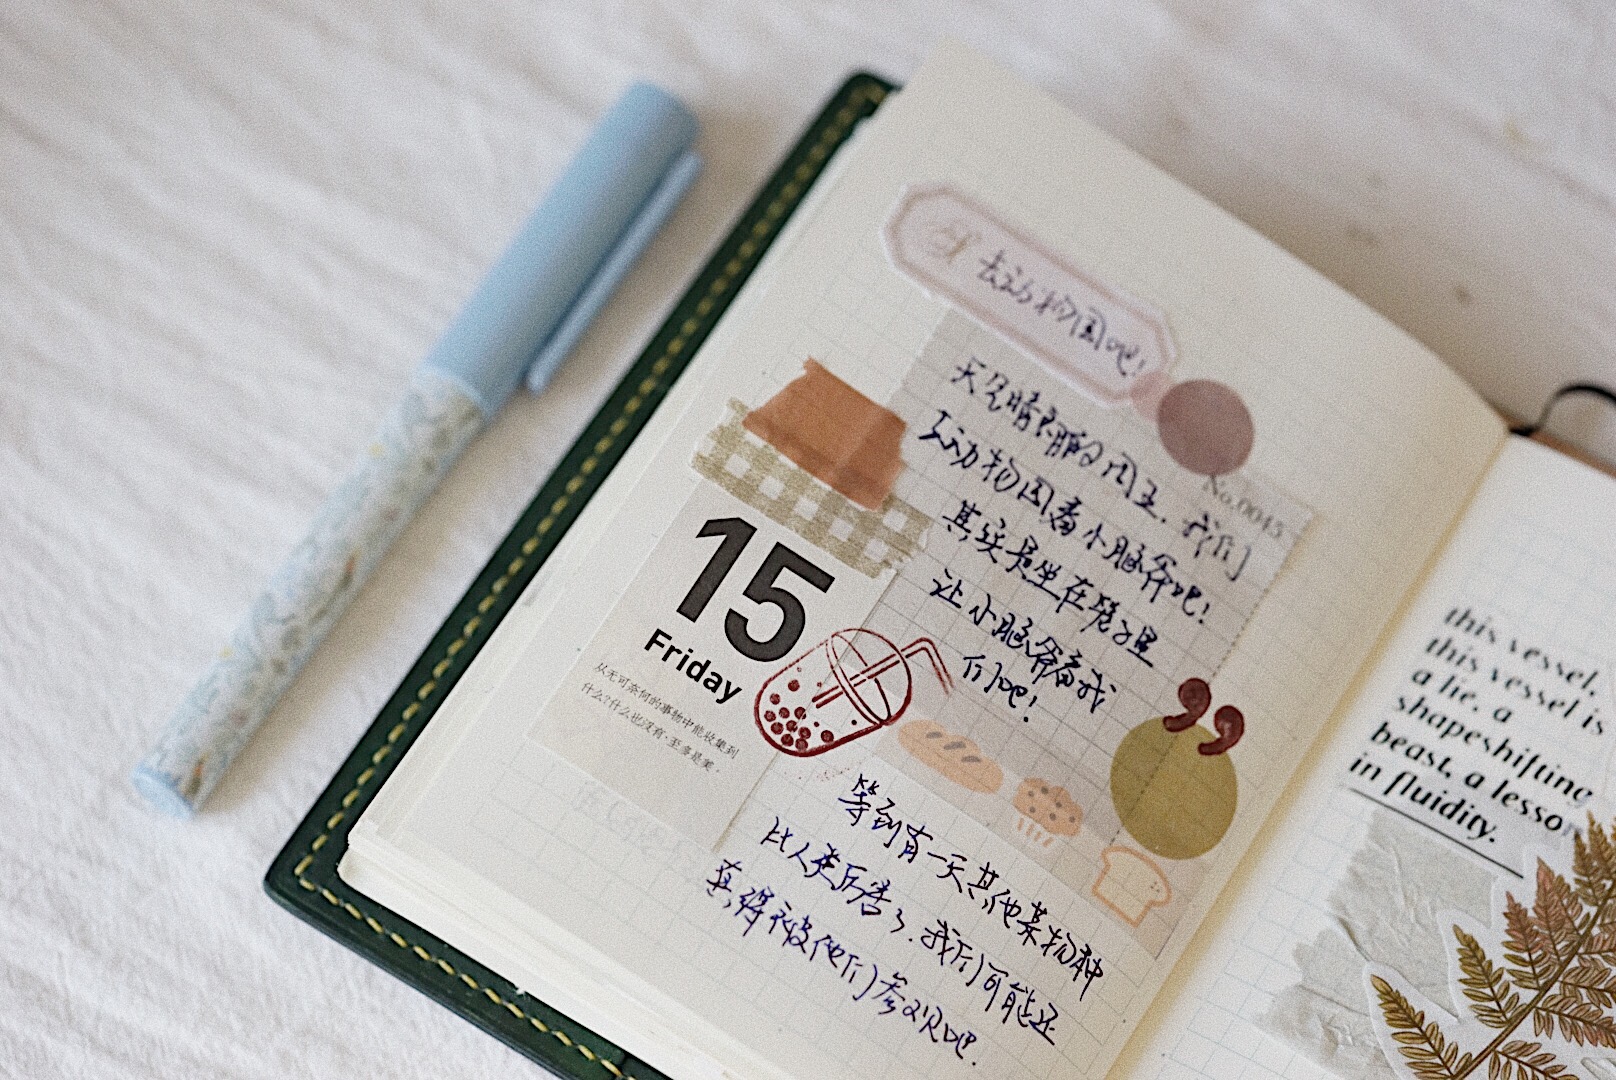 去动物园吧!
天气晴朗的周五,我们
去动物园看小脑斧吧!
其实是坐在笼子里
让小脑斧看我
们吧!
No.0045
15
Friday
从无可奈何的事物中能收集到
什么?什么也没有,至多是美。
等到有一天其他某物种
比人类厉害了,我们可能还
真得被他们参观吧.
this vessel.
this vessel is
a lie. a
shapeshifting
beast, a lesson
in fluidity.